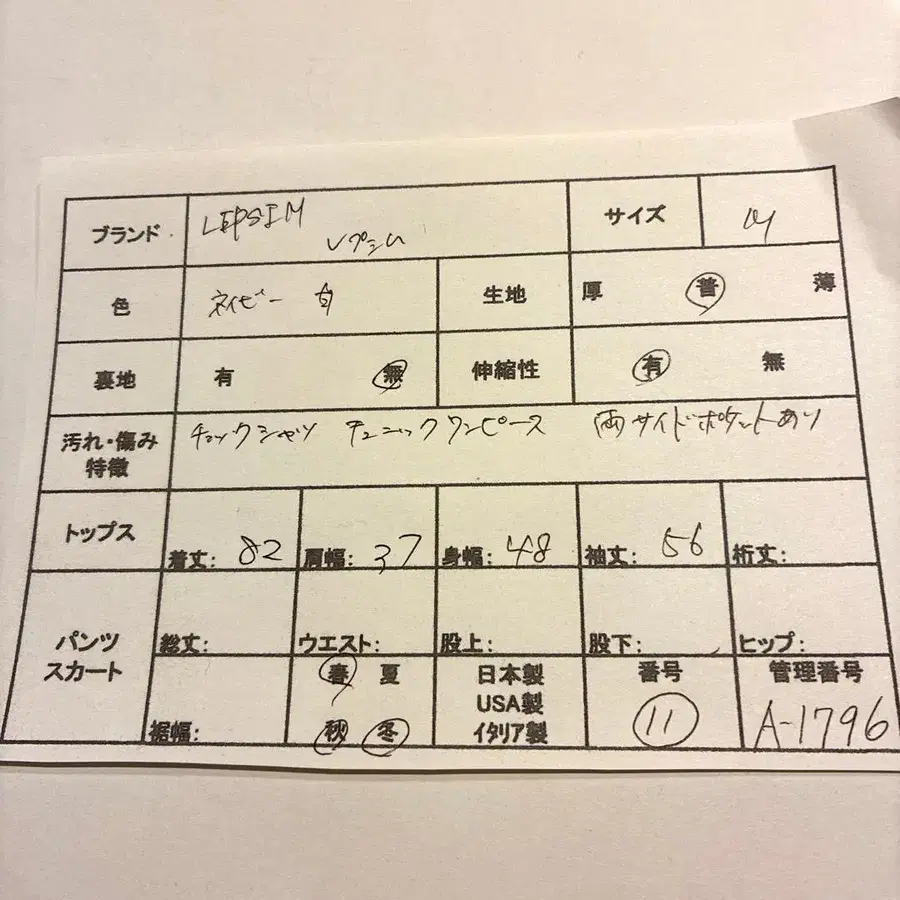 ブランド LEPSIM サイズ M
レプシム
色 ネイビー 白 生地 厚 普 薄
裏地 有 無 伸縮性 有 無
汚れ・傷み チェックシャツ チュニックワンピース 両サイドポケットあり
特徴
トップス 着丈: 82 肩幅: 37 身幅: 48 袖丈: 56 裄丈:
パンツ 総丈: ウエスト: 股上: 股下: ヒップ:
スカート 春 夏 日本製 番号 管理番号
USA製
裾幅: 秋 冬 イタリア製 11 A-1796